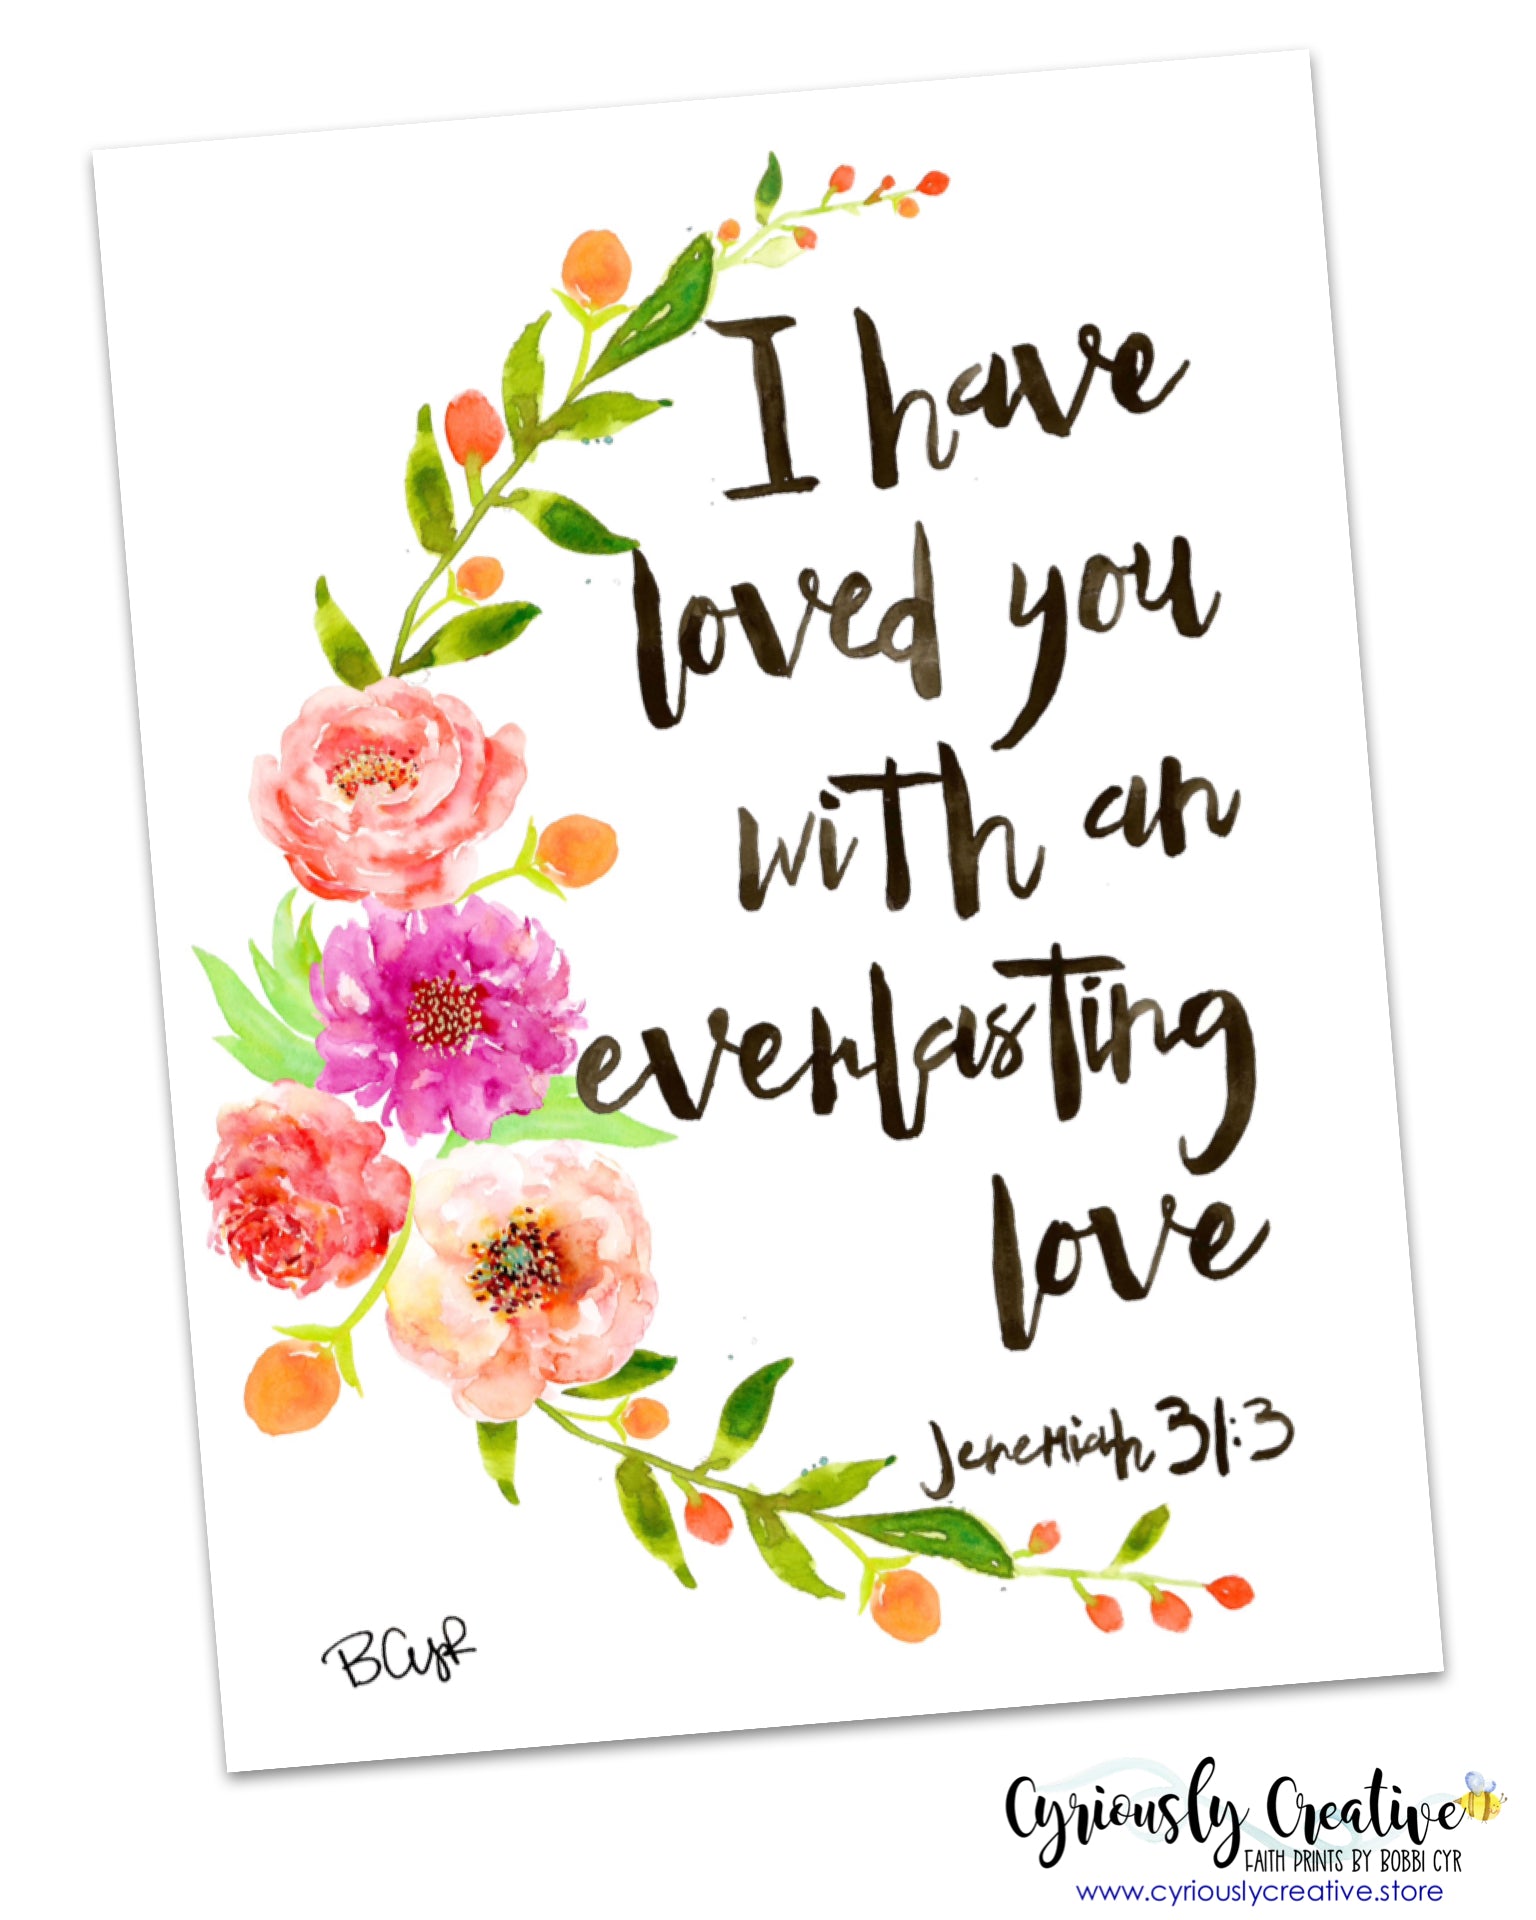 I have
loved you
with an
everlasting
love
Jeremiah 31:3
BCyR
Cyriously Creative
FAITH PRINTS BY BOBBI CYR
www.cyriouslycreative.store